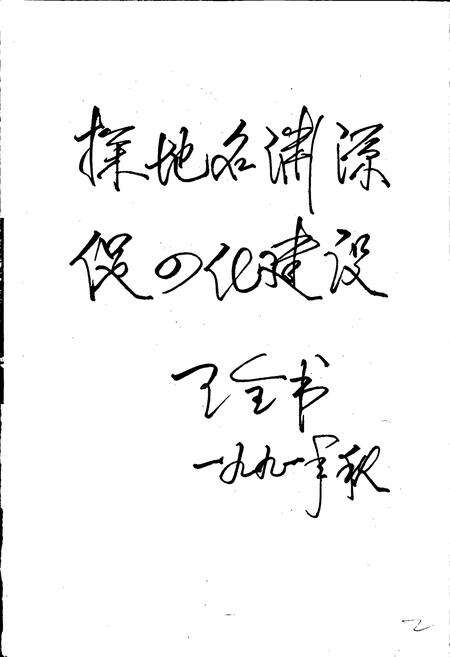 探地名渊深
促四化建设
王全书
一九九一年秋